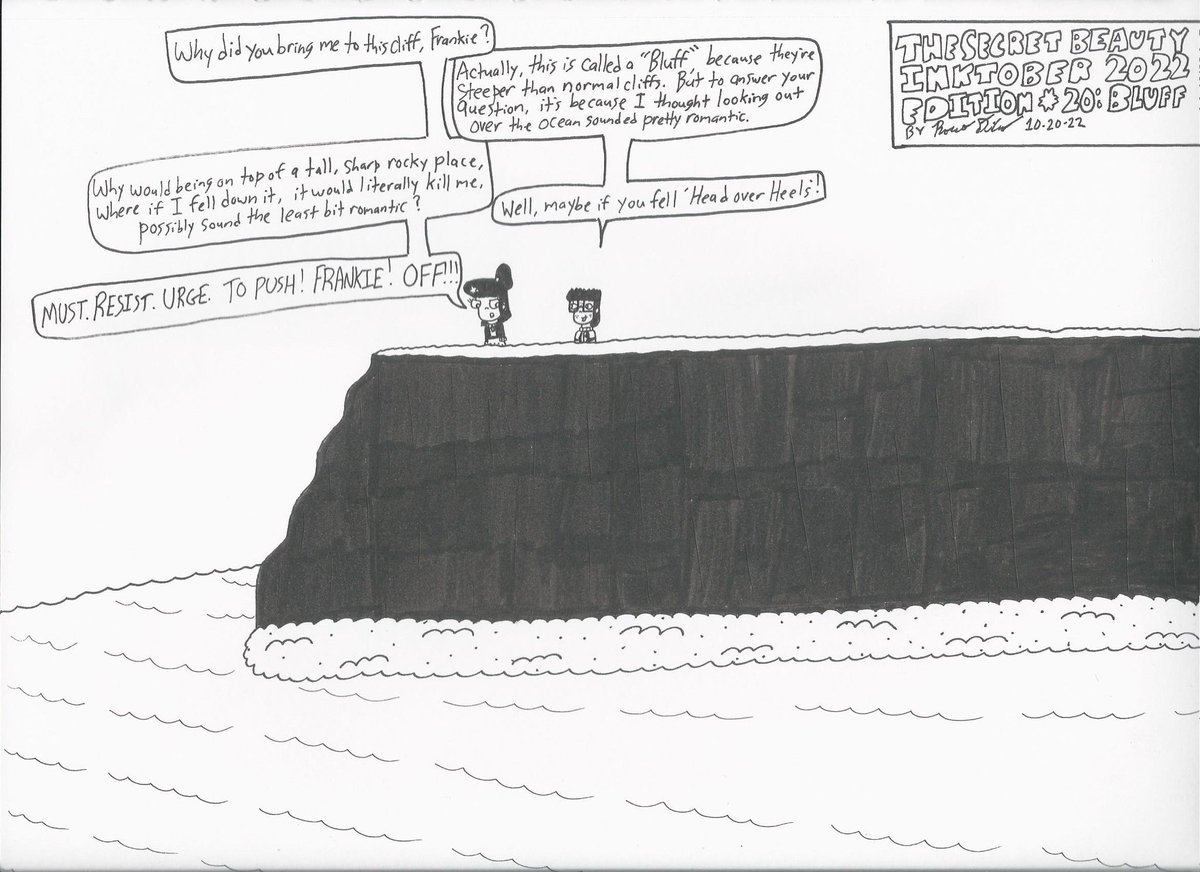 Why did you bring me to this cliff, Frankie?
Actually, this is called a "Bluff" because they're
steeper than normal cliffs. But to answer your
question, it's because I thought looking out
over the ocean sounded pretty romantic.
Why would being on top of a tall, sharp rocky place,
where if I fell down it, it would literally kill me,
possibly sound the least bit romantic?
Well, maybe if you fell 'Head over Heels'!
MUST. RESIST. URGE. TO PUSH! FRANKIE! OFF!!!
THE SECRET BEAUTY
INKTOBER 2022
EDITION # 20: BLUFF
BY 10-20-22